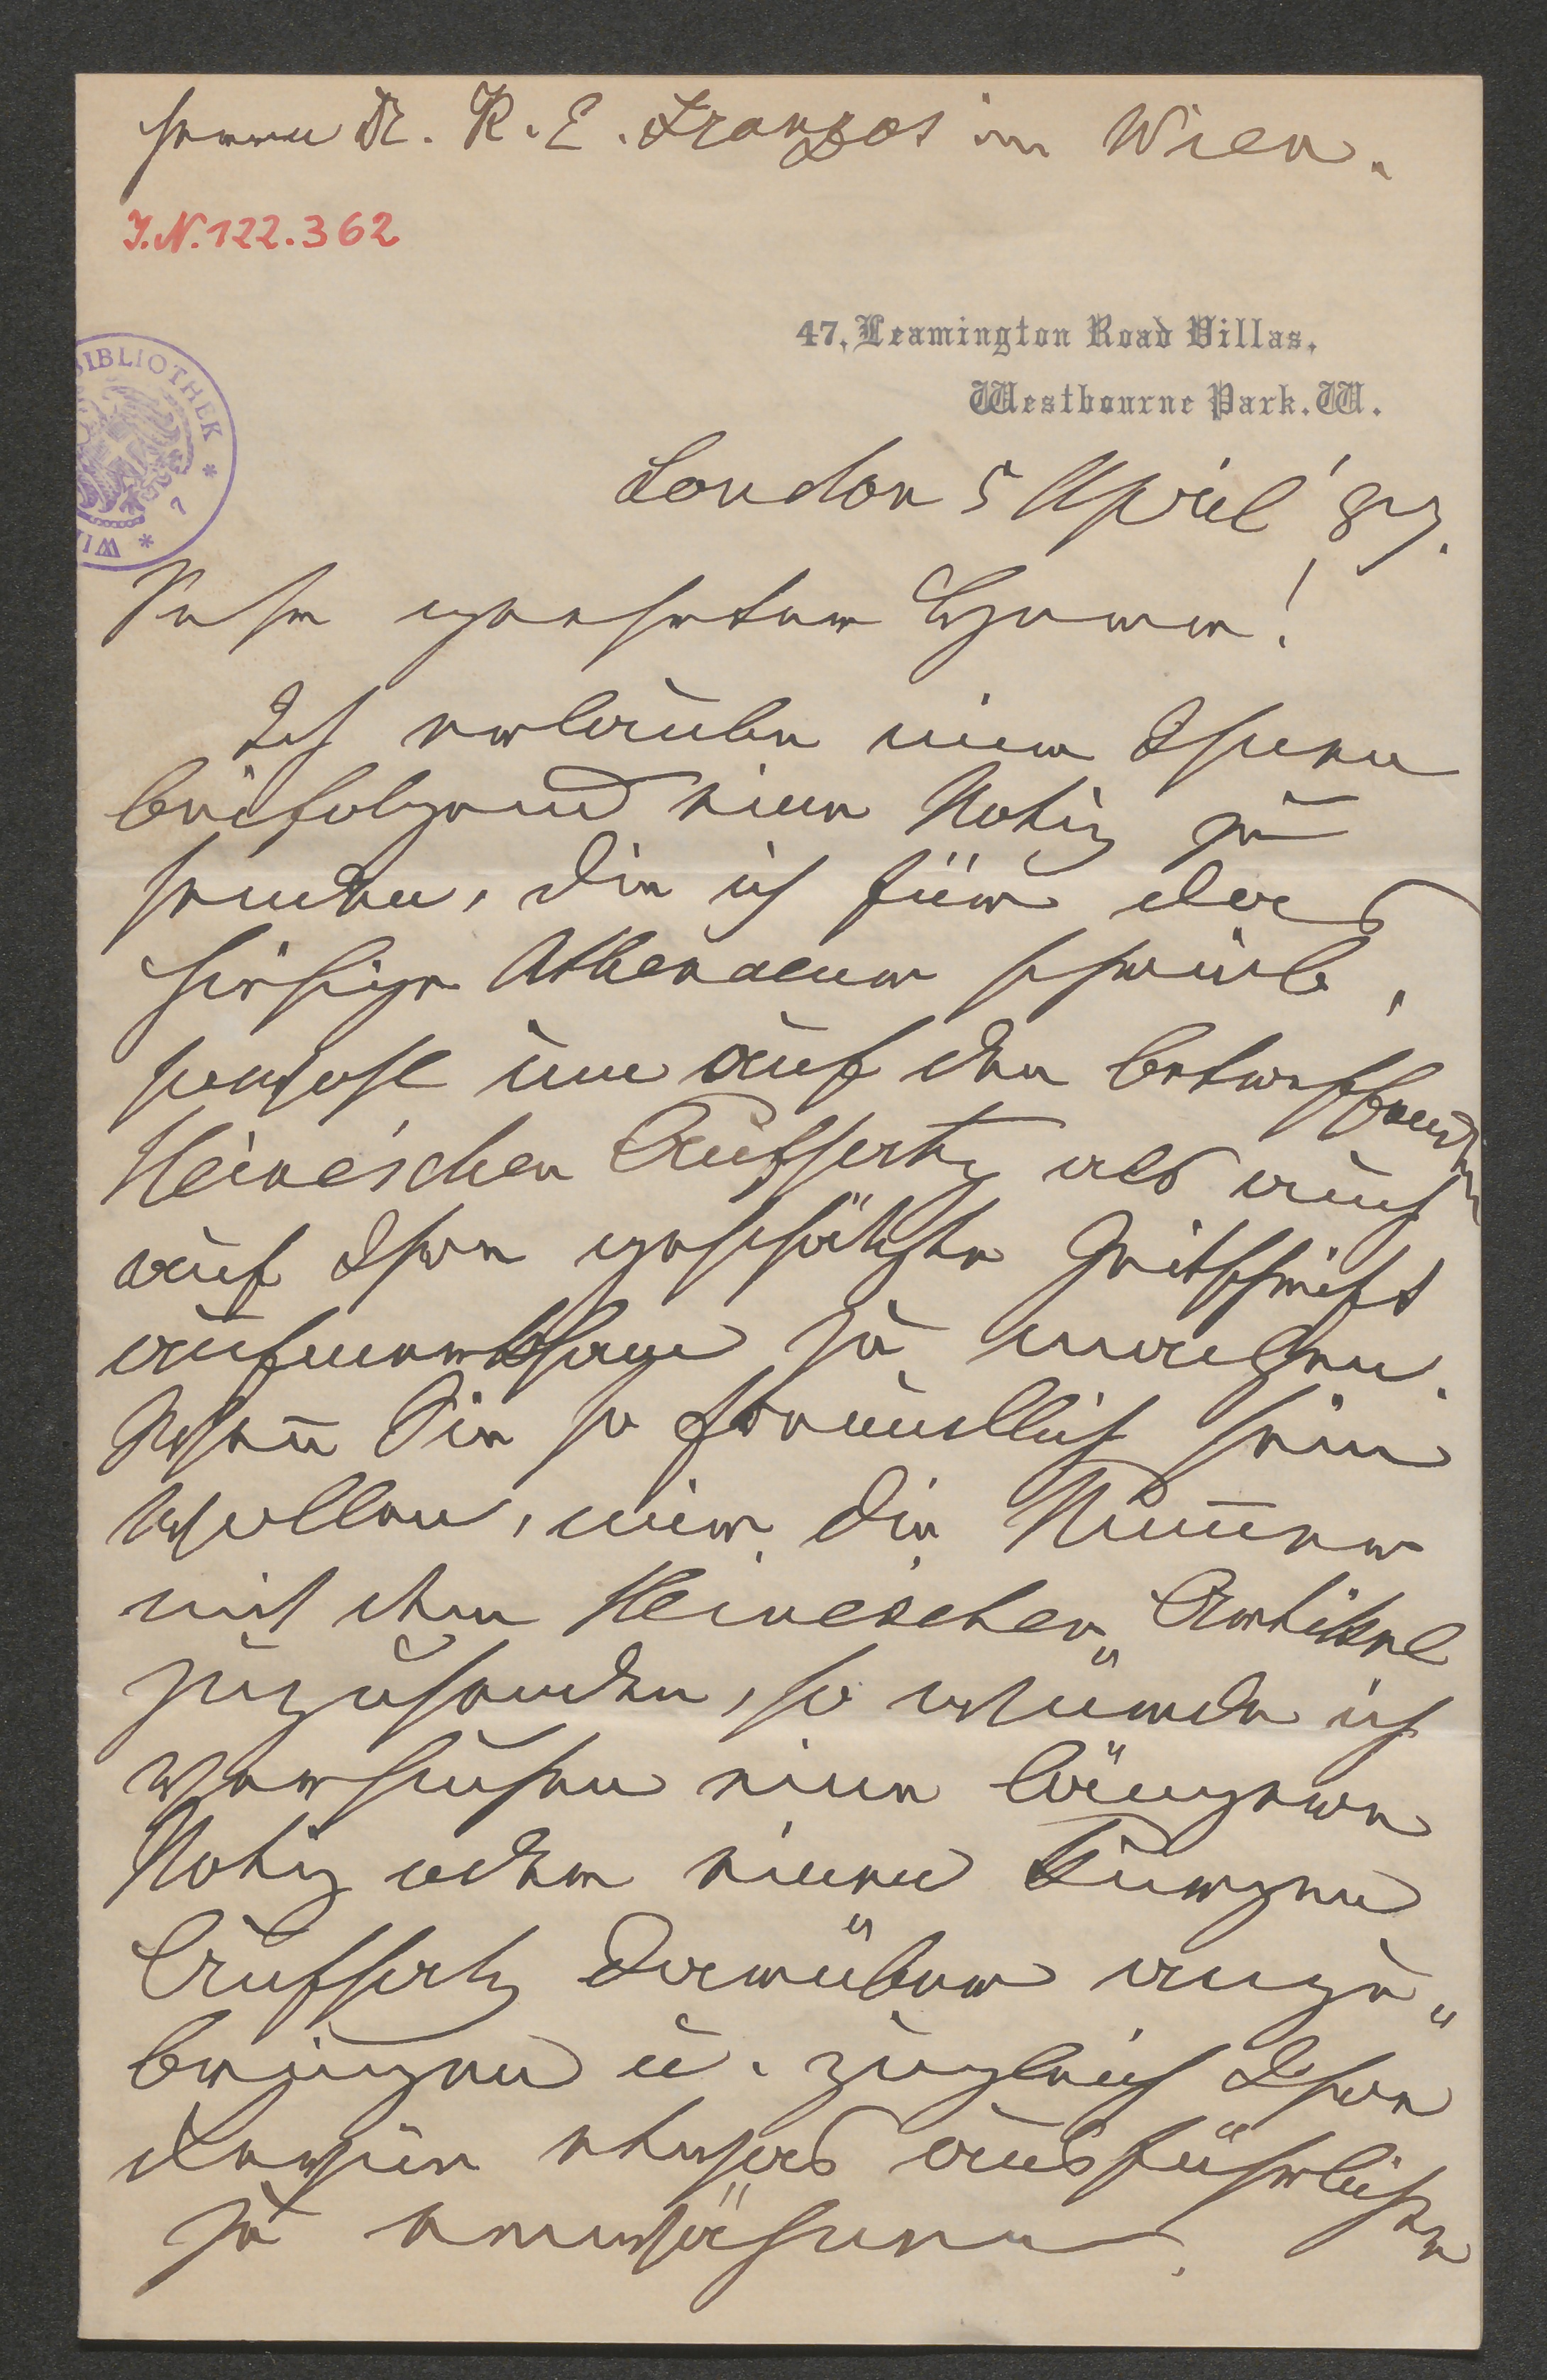 Herrn Dr. K. E. Franzos in Wien.
J.N. 122.362
BIBLIOTHEK * 7 * WI
47, Leamington Road Villas,
Westbourne Park. W.
London 5 April '87.
Sehr geehrter Herr!
Ich erlaube mir Ihnen
beifolgend eine Notiz zu
senden, die ich für das
hiesige Athenaeum schrieb,
sowohl um auf den betreffenden
Heine'schen Aufsatz als auch
auf Ihre geschätzte Zeitschrift
aufmerksam zu machen.
Wenn Sie so freundlich sein
wollen, mir die Nummer
mit dem Heineschen Artikel
zuzusenden, so würde ich
versuchen eine längere
Notiz oder einen kurzen
Aufsatz darüber anzu„
bringen u. zugleich Ihre
Revue etwas ausführlicher
zu erwähnen.